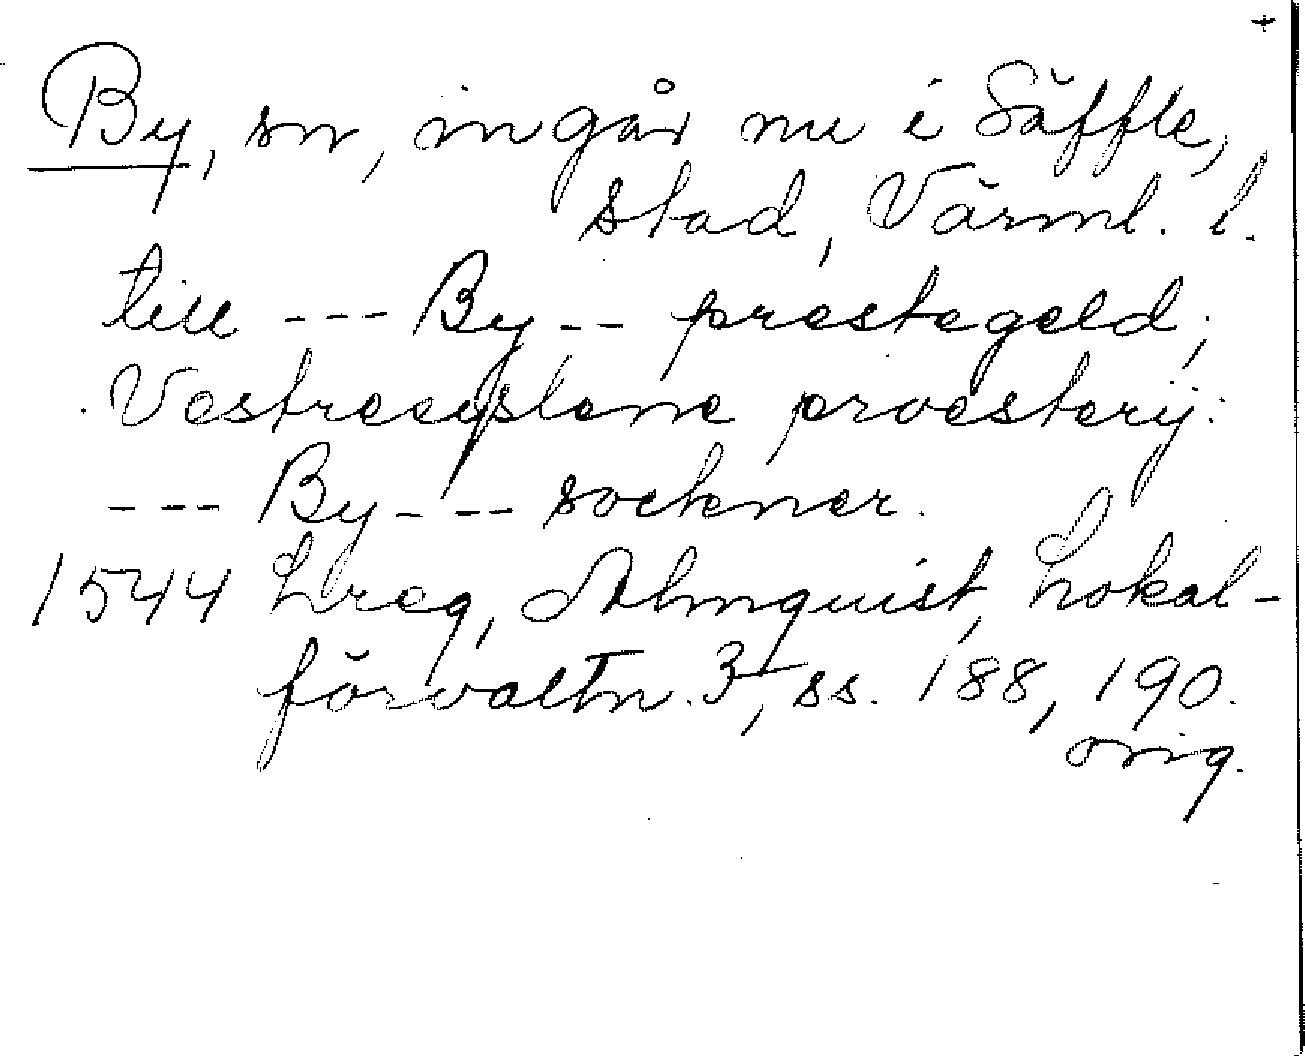 +
By, sn, ingår nu i Säffle,
stad, Värml. l.
till --- By -- prestegeld;
Vestresyslene proestery:
--- By --- sockner.
1544 Lreg, Almquist, Lokal-
förvaltn. 3, ss. 188, 190.
orig.